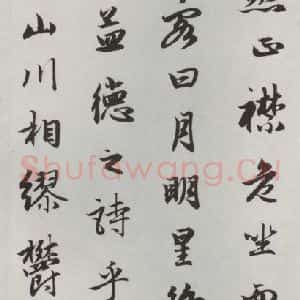 然正襟危坐而
客曰月明星稀
孟德之詩乎
山川相繆鬱
Shufawang.Cn